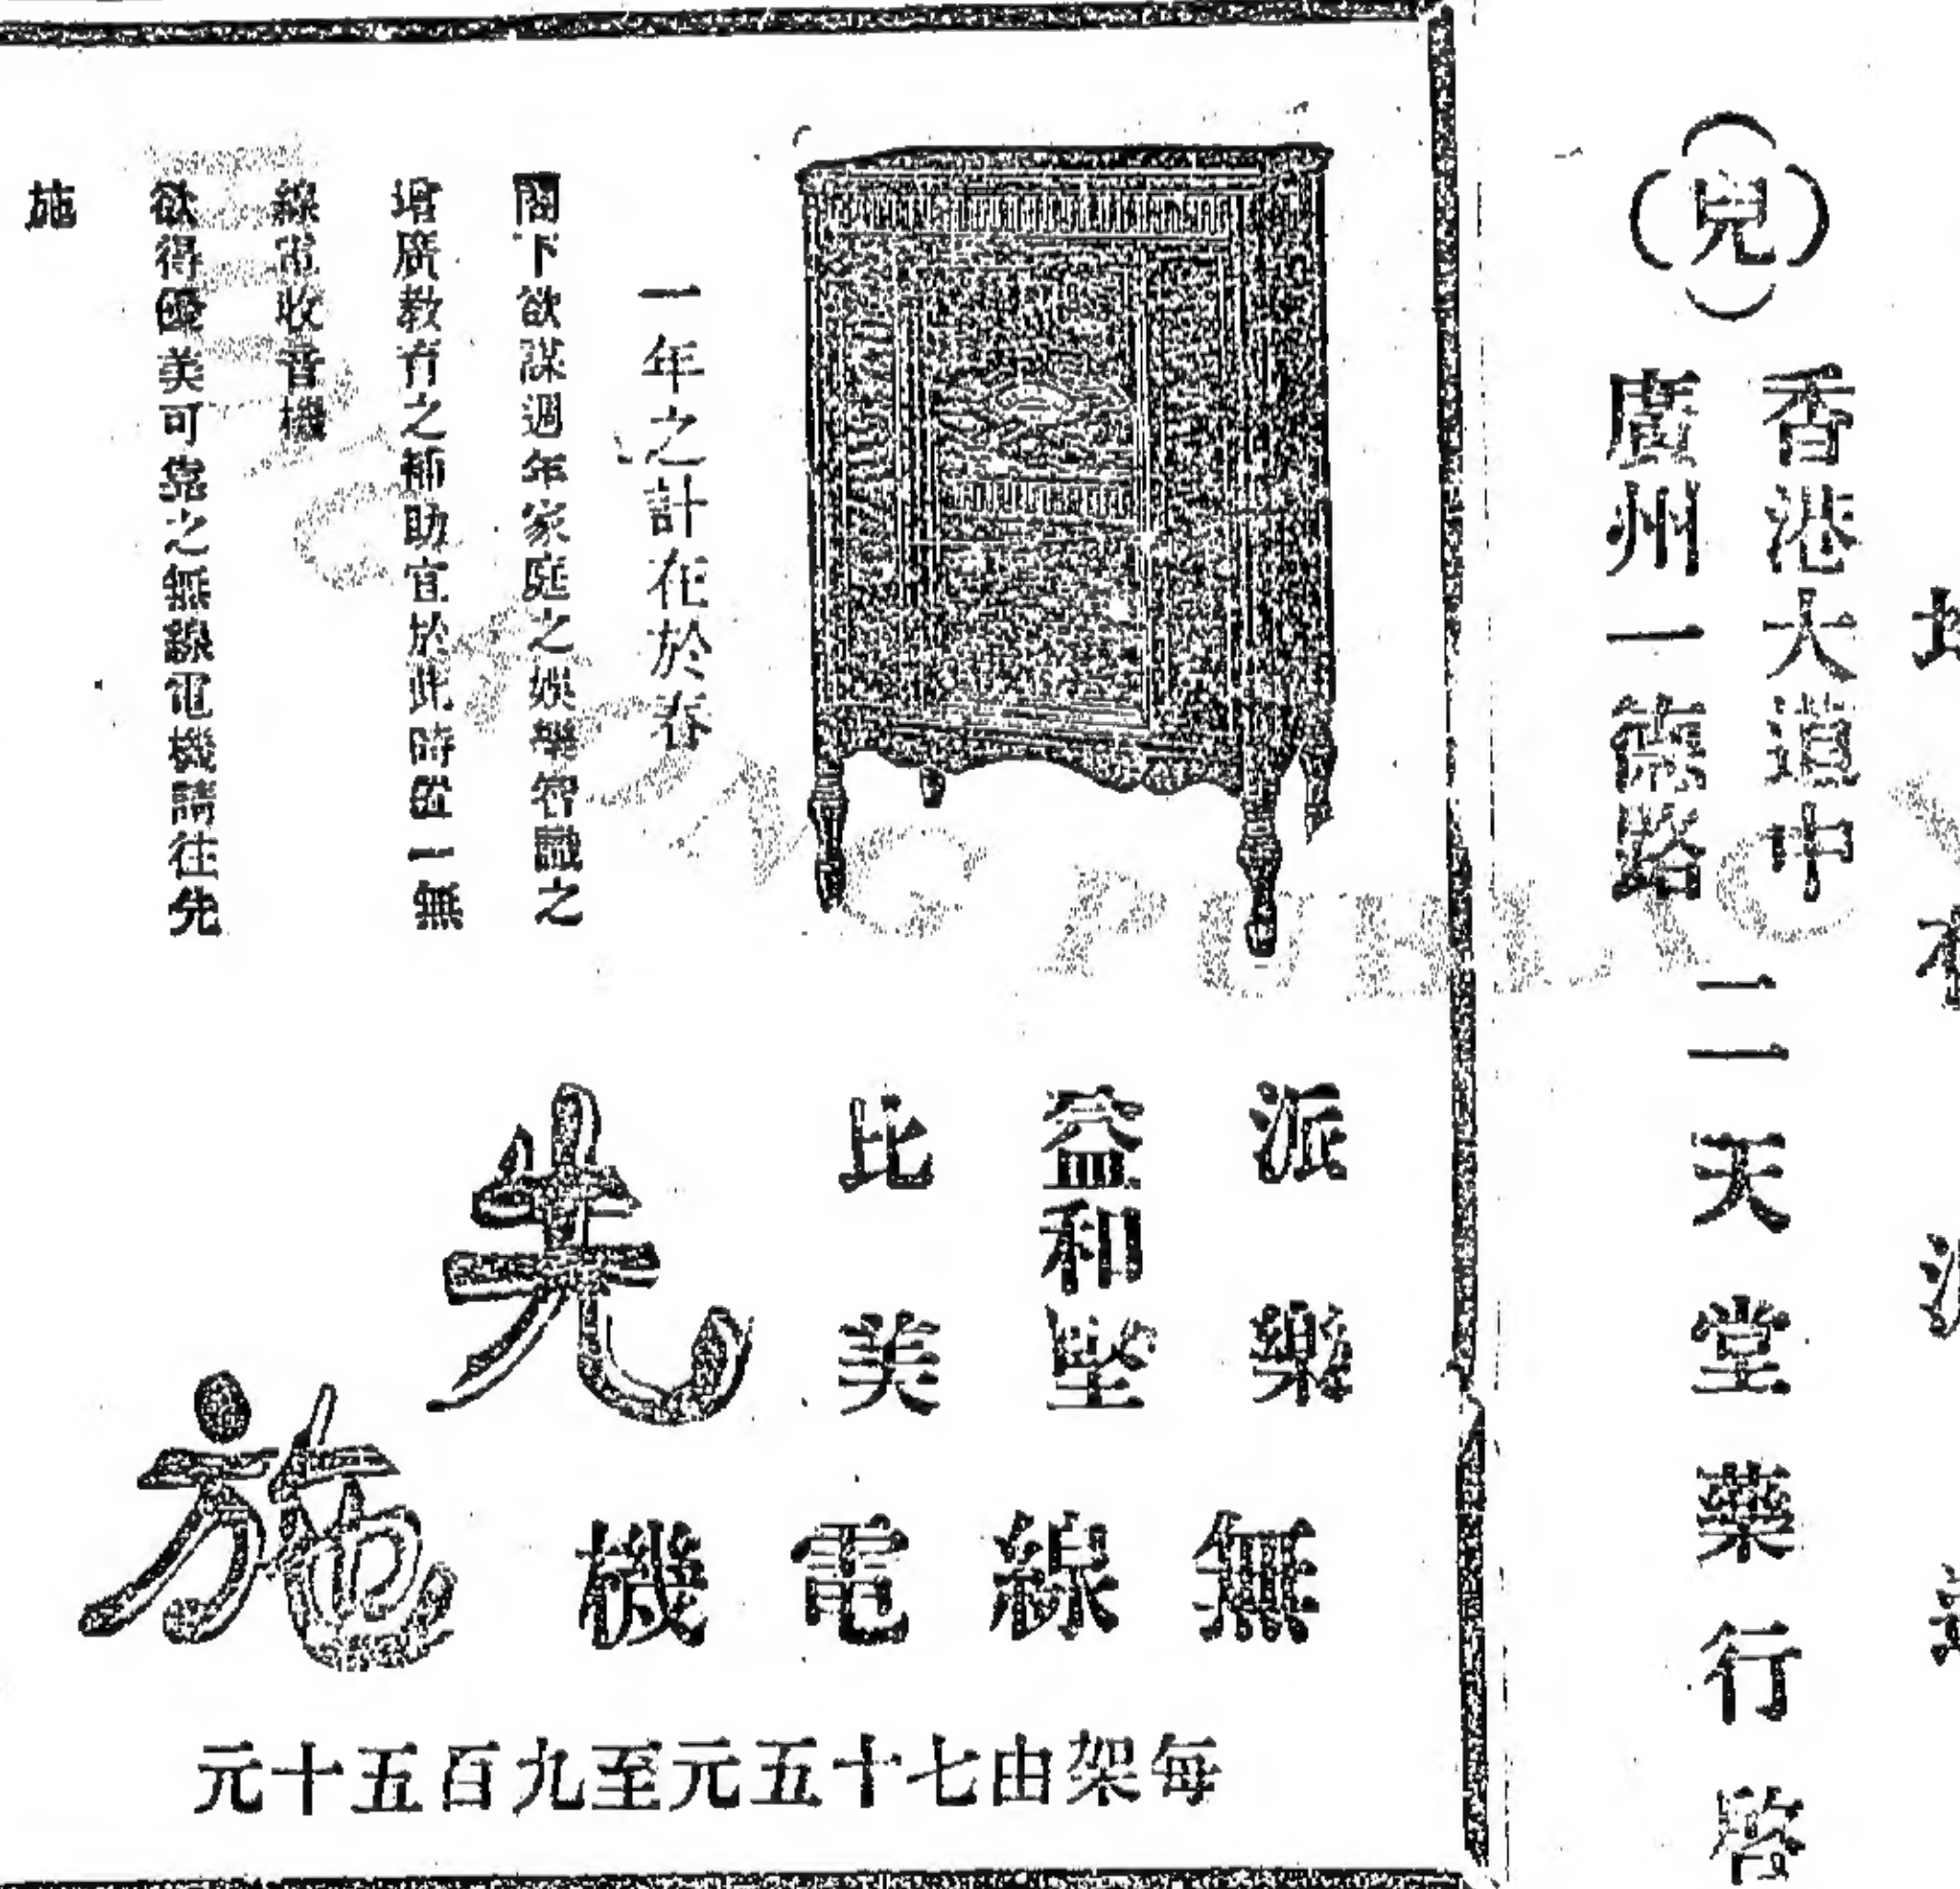 兒
香港大道中
廣州一德路
二天堂藥行啓
一年之計在於春
閣下欲謀週年家庭之娛樂智識之
增廣教育之補助宜於此時置一無
線電收音機
欲得優美可靠之無線電機請往先
施
派樂
益和堅
比美
無線電機
先施
每架由七十五元至九百五十元